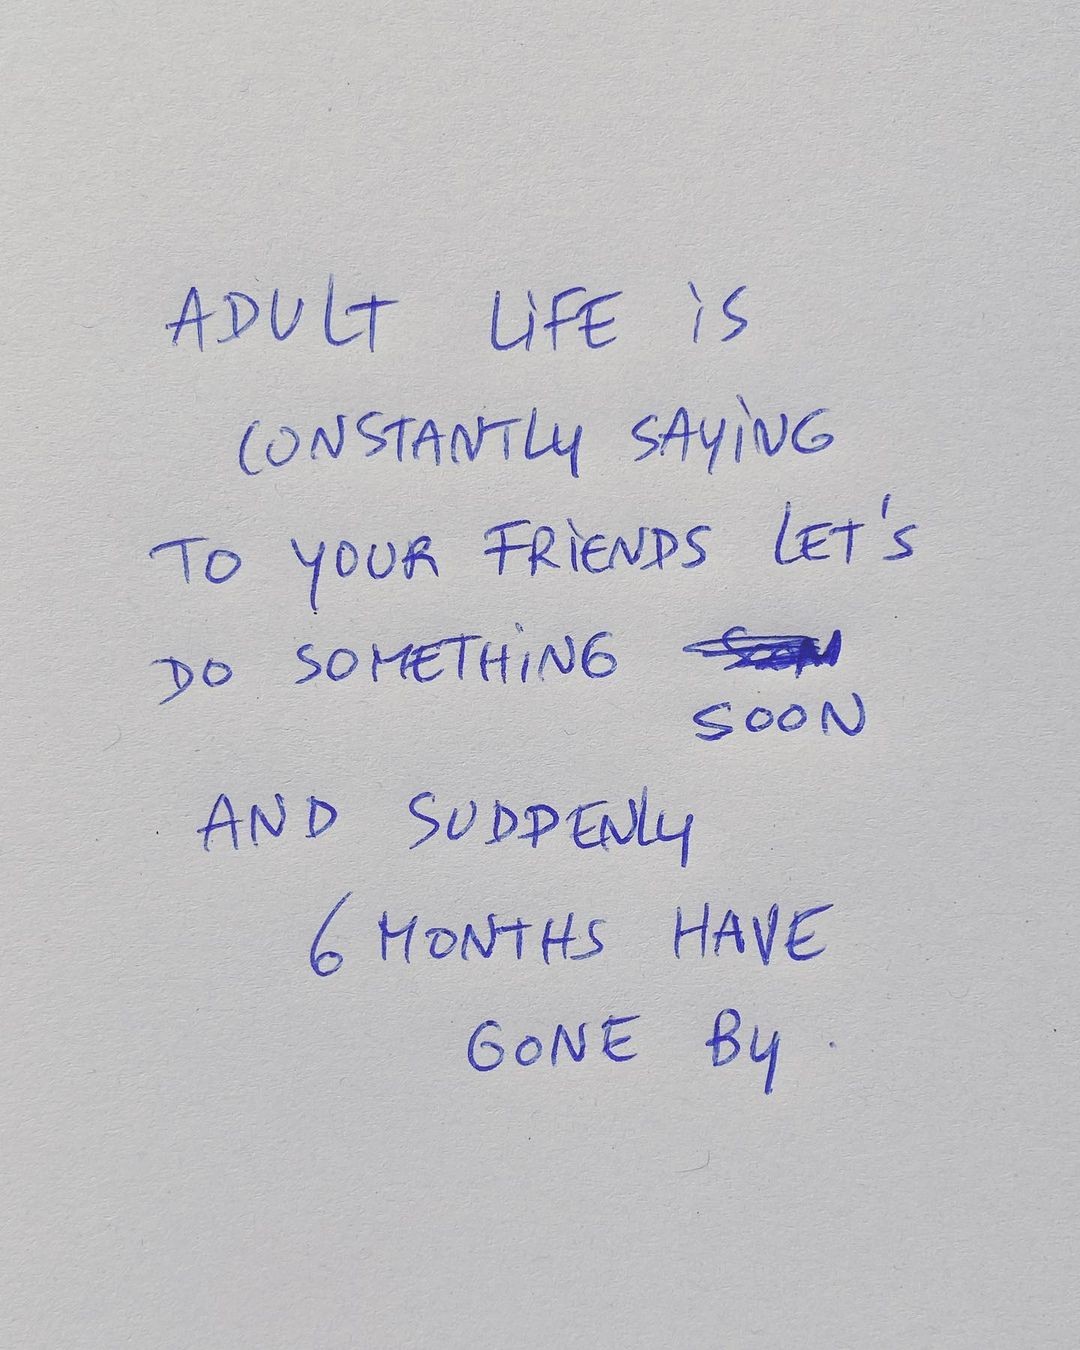 ADULT LiFE iS
CONSTANTLY SAYiNG
TO YOUR FRiENDS LET'S
DO SOMETHiNG
SOON
AND SUDDENLY
6 MONTHS HAVE
GONE BY.